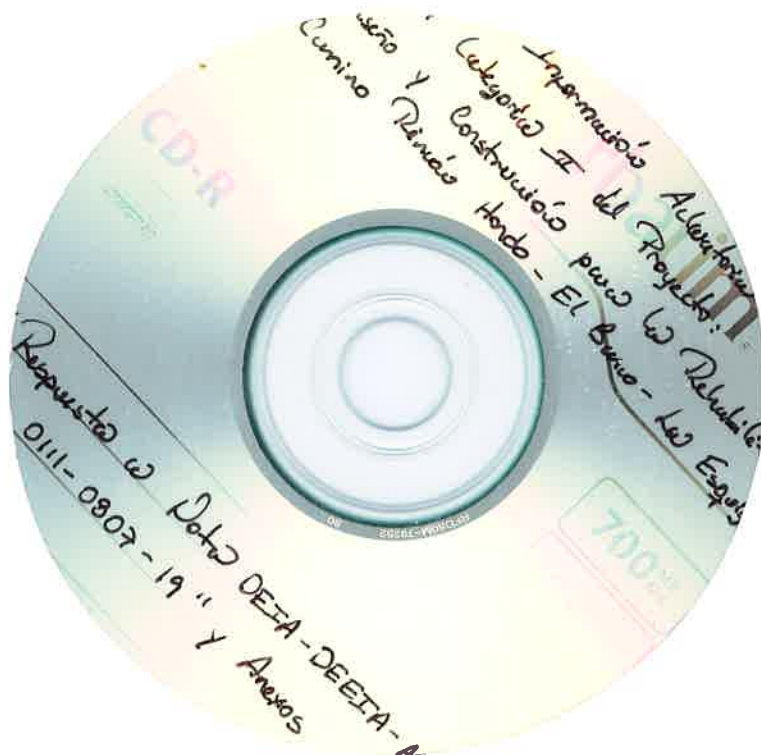 Información Aclaratoria
Categoría II del Proyecto:
seño y Construcción para la Rehabili
Camino Rincón Hondo - El Barro - La Esqui
CD-R
maxim
700
80
Respuesta a Nota DEIA-DEEIA-A
0111-0807-19" y Anexos